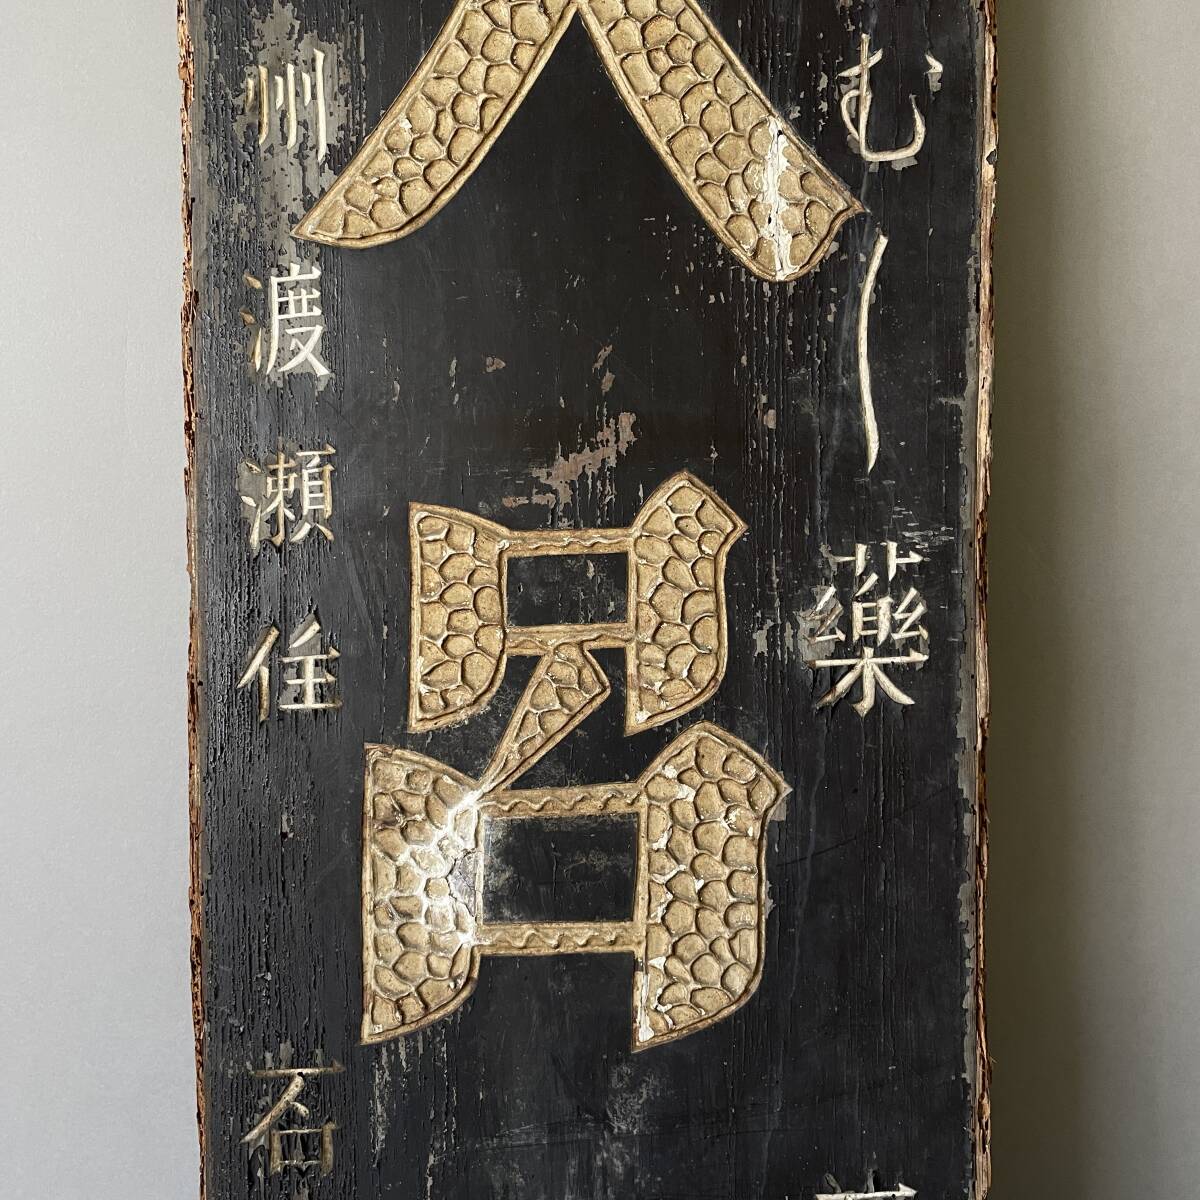 むし藥
呂
州渡瀬住　石